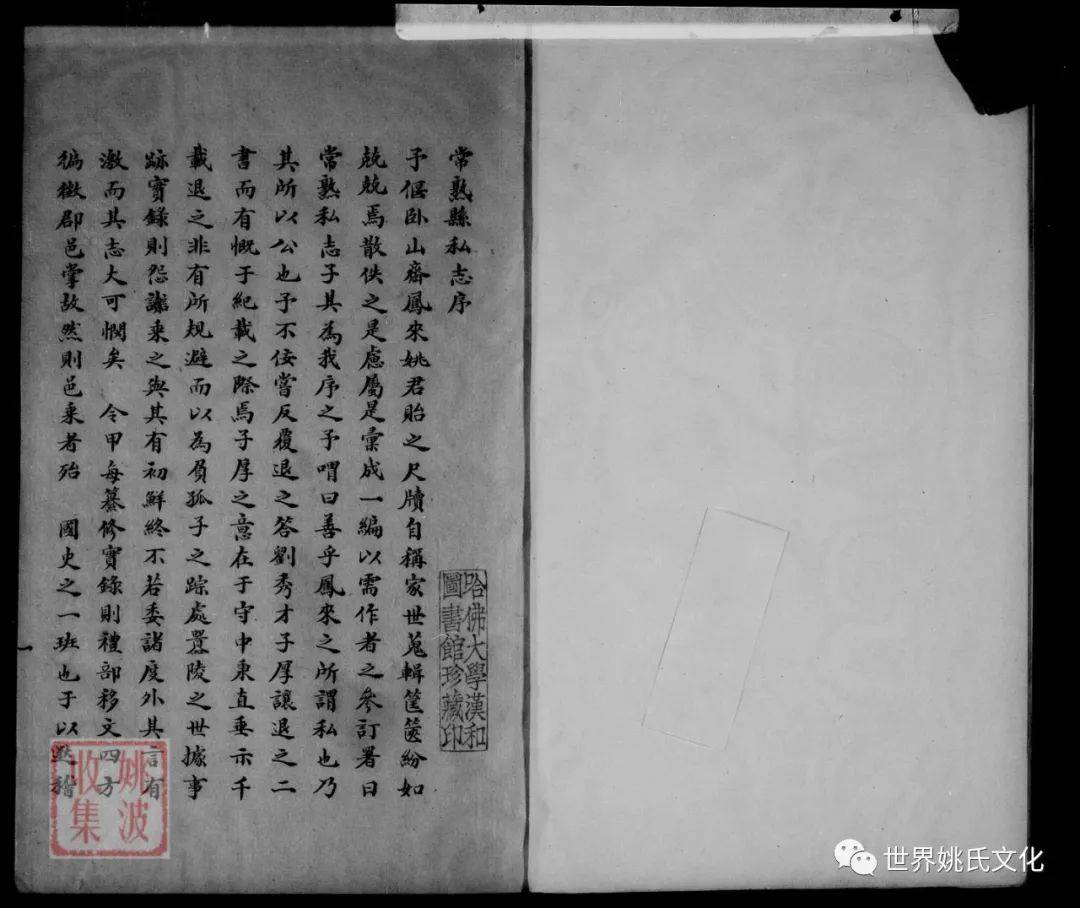 常熟縣私志序
予偃卧山齋鳳來姚君貽之尺牘自稱家世蒐輯筐篋紛如
兢兢焉散佚之是慮屬是彙成一編以需作者之參訂署曰
常熟私志子其為我序之予喟曰善乎鳳來之所謂私也乃
其所以公也予不佞嘗反覆退之答劉秀才子厚讓退之二
書而有慨于紀載之際焉子厚之意在于守中秉直垂示千
載退之非有所規避而以為負孤子之踪處囂陵之世據事
跡實錄則怨讟乘之與其有初鮮終不若委諸度外其言有
激而其志大可憫矣 令甲每纂修實錄則禮部移文四方
徧徵郡邑掌故然則邑乘者殆 國史之一班也于以
稽
哈佛大學漢和
圖書館珍藏印
姚波
收集
世界姚氏文化